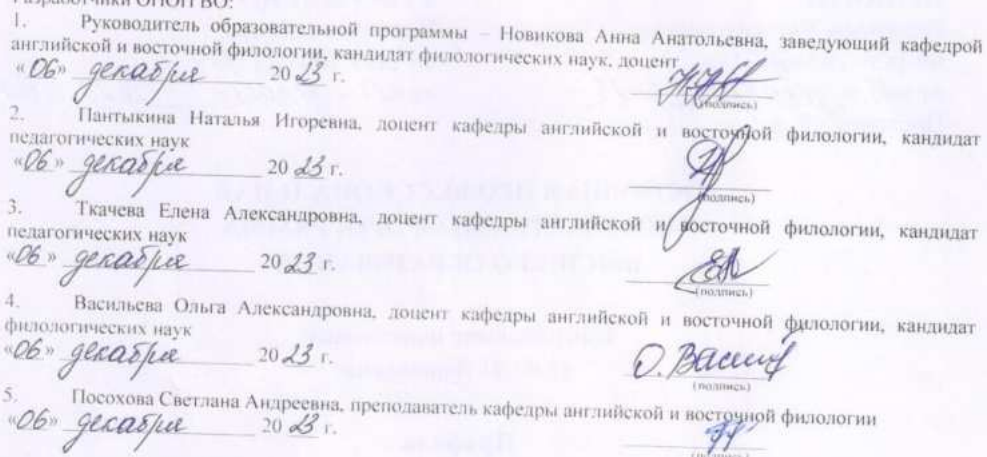 Разработчики ОПОП ВО:
1. Руководитель образовательной программы – Новикова Анна Анатольевна, заведующий кафедрой
английской и восточной филологии, кандидат филологических наук, доцент
«06» декабря 2023 г.
(подпись)
2. Пантыкина Наталья Игоревна, доцент кафедры английской и восточной филологии, кандидат
педагогических наук
«06» декабря 2023 г.
(подпись)
3. Ткачева Елена Александровна, доцент кафедры английской и восточной филологии, кандидат
педагогических наук
«06» декабря 2023 г.
(подпись)
4. Васильева Ольга Александровна, доцент кафедры английской и восточной филологии, кандидат
филологических наук
«06» декабря 2023 г.
(подпись)
5. Посохова Светлана Андреевна, преподаватель кафедры английской и восточной филологии
«06» декабря 2023 г.
(подпись)